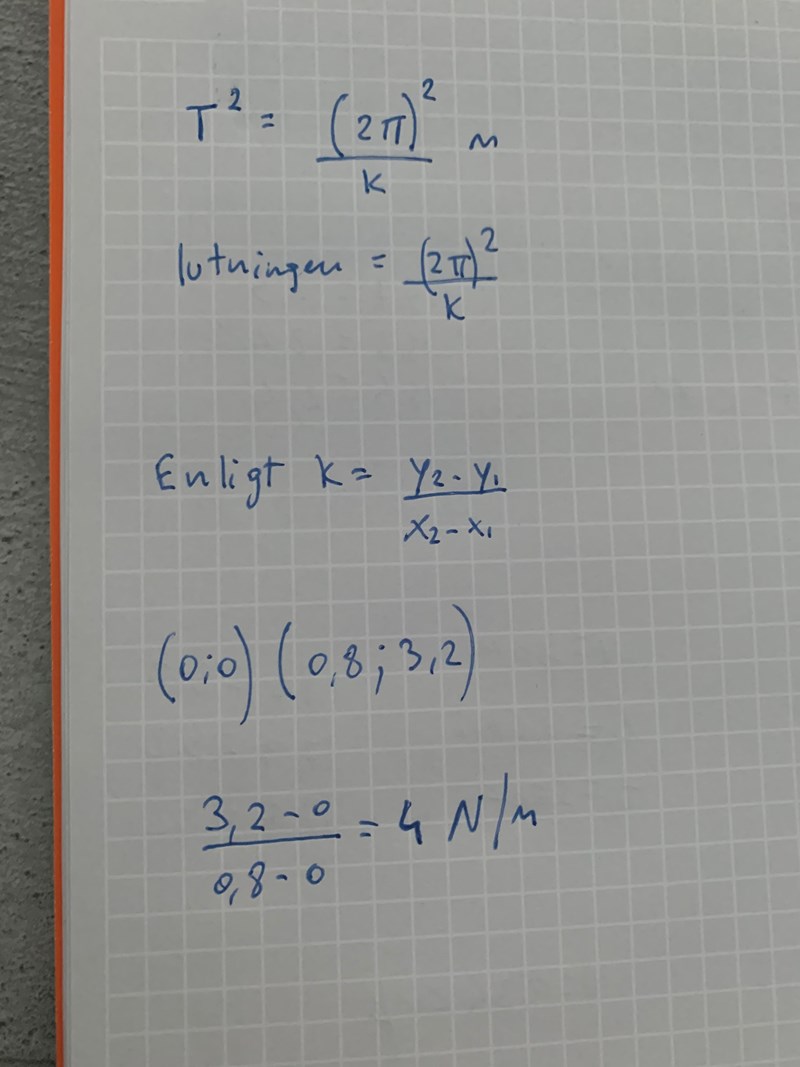 T² = (2π)²/k m
lutningen = (2π)²/k
Enligt k = y₂-y₁/x₂-x₁
(0;0) (0,8;3,2)
3,2-0/0,8-0 = 4 N/m